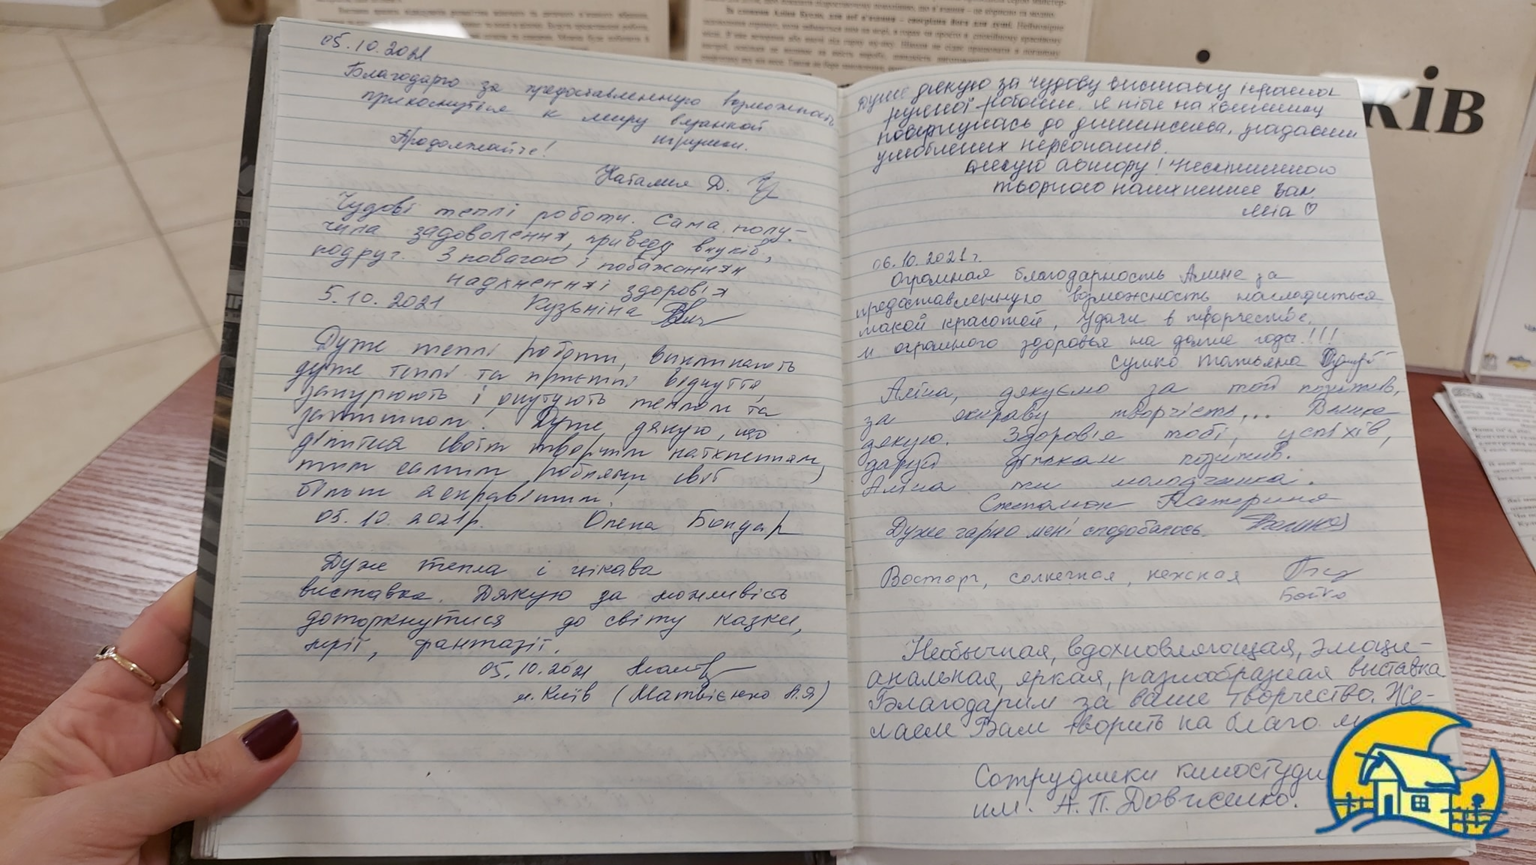 05.10.2021
Благодарю за предоставленную возможность
прикоснуться к миру вязанной
игрушки.
Продолжайте!
Наталия Д.
Чудові теплі роботи. Сама полу-
чила задоволення, приведу внуків,
подруг. З повагою і побажанням
надхнення і здоров'я
5.10.2021 Кузьміна
Дуже теплі роботи, викликають
дуже теплі та приємні відчуття,
занурюють і окутують теплом та
затишком! Дуже дякую, що
ділитися своїм творчим натхненням,
тим самим роблячи світ
більш яскравішим!
05.10.2021р. Олена Бондар
Дуже тепла і цікава
виставка. Дякую за можливість
доторкнутися до світу казки,
мрії, фантазії.
05.10.2021
м. Київ (Матвієнко А.Я)
Дуже дякую за чудову виставку
ручної роботи. Я ніби на хвилинку
повернулась до дитинства, згадавши
улюблених персонажів.
Дякую автору! Нескінченного
творчого натхнення Вам
Яна ♡
06.10.2021 г.
Огромная благодарность Алине за
предоставленную возможность насладиться
такой красотой, удачи в творчестве,
и огромного здоровья на долгие года!!!
Сумко Татьяна
Аліна, дякуємо за той позитив,
за яскраву творчість...
дякую. Здоров'я тобі, успіхів,
даруй діткам позитив.
Аліна ти молодчинка.
Степанюк Катерина
Дуже гарно мені сподобалось.
Восторг, солнечная, нежная
Бойко
Необычная, вдохновляющая, эмоци-
анальная, яркая, разнообразная выставка
Благодарим за ваше творчество. Же-
лаем Вам творить на благо
Сотрудники киностуди
им. А.П. Довженко.
КІВ